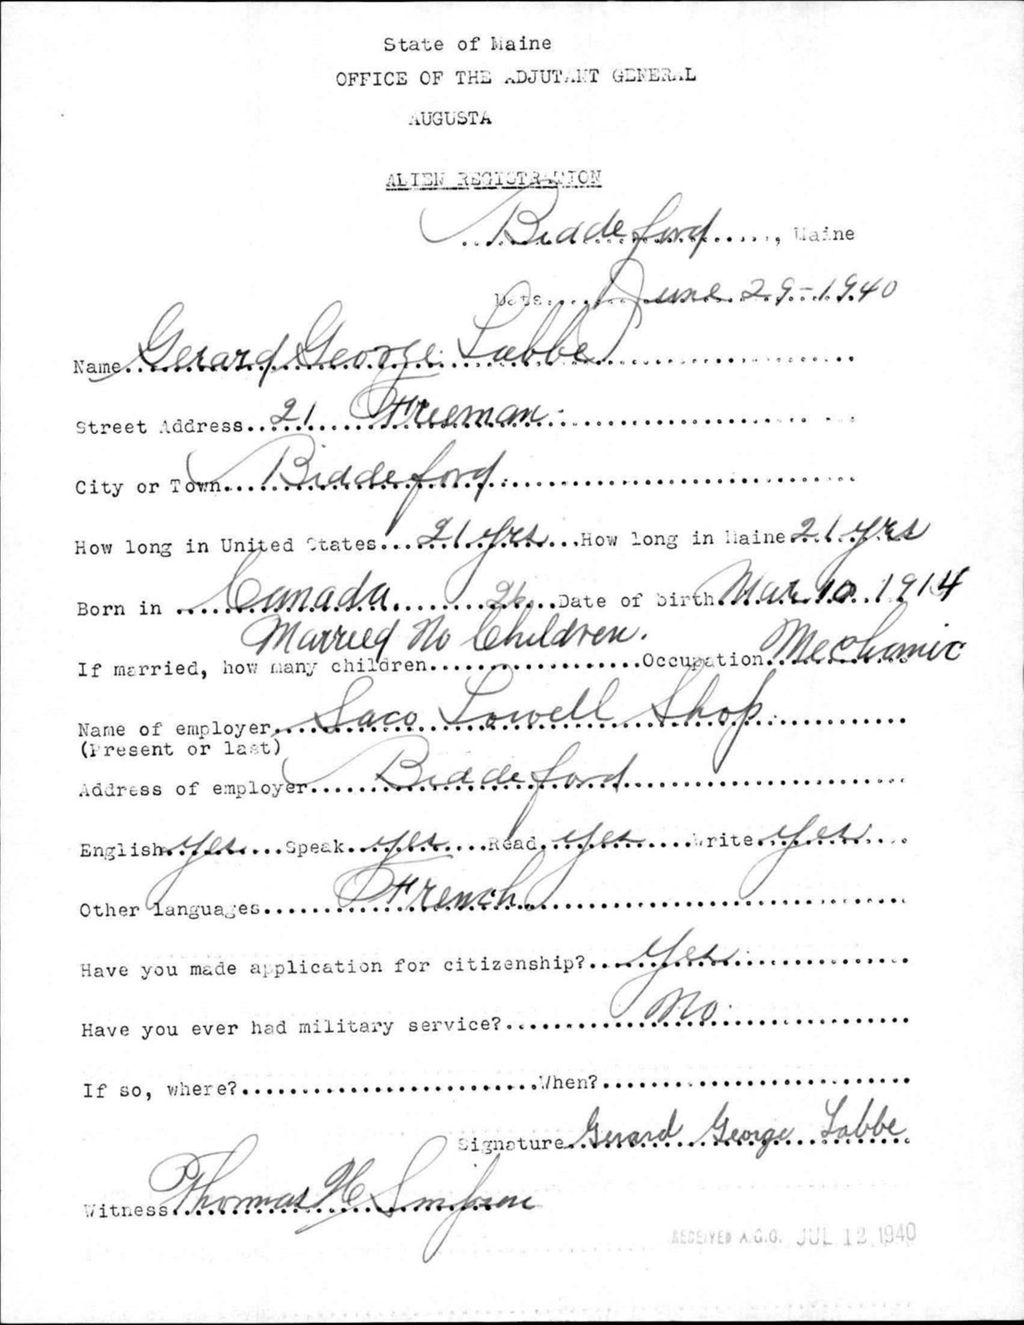 State of Maine
OFFICE OF THE ADJUTANT GENERAL
AUGUSTA
ALIEN REGISTRATION
Biddeford, Maine
Date June 29-1940
Name Gerard George Labbe
Street Address 21 Freeman.
City or Town Biddeford
How long in United States 21 yrs How long in Maine 21 yrs
Born in Canada 26 Date of birth Mar 10. 1914
Married No Children.
If married, how many children Occupation Mechanic
Name of employer Saco Lowell Shop
(Present or last)
Address of employer Biddeford
English yes Speak yes Read yes Write yes
Other languages French
Have you made application for citizenship? Yes
Have you ever had military service? No.
If so, where? When?
Signature Gerard George Labbe
Witness Thomas H
RECEIVED A.G.O. JUL 12 1940